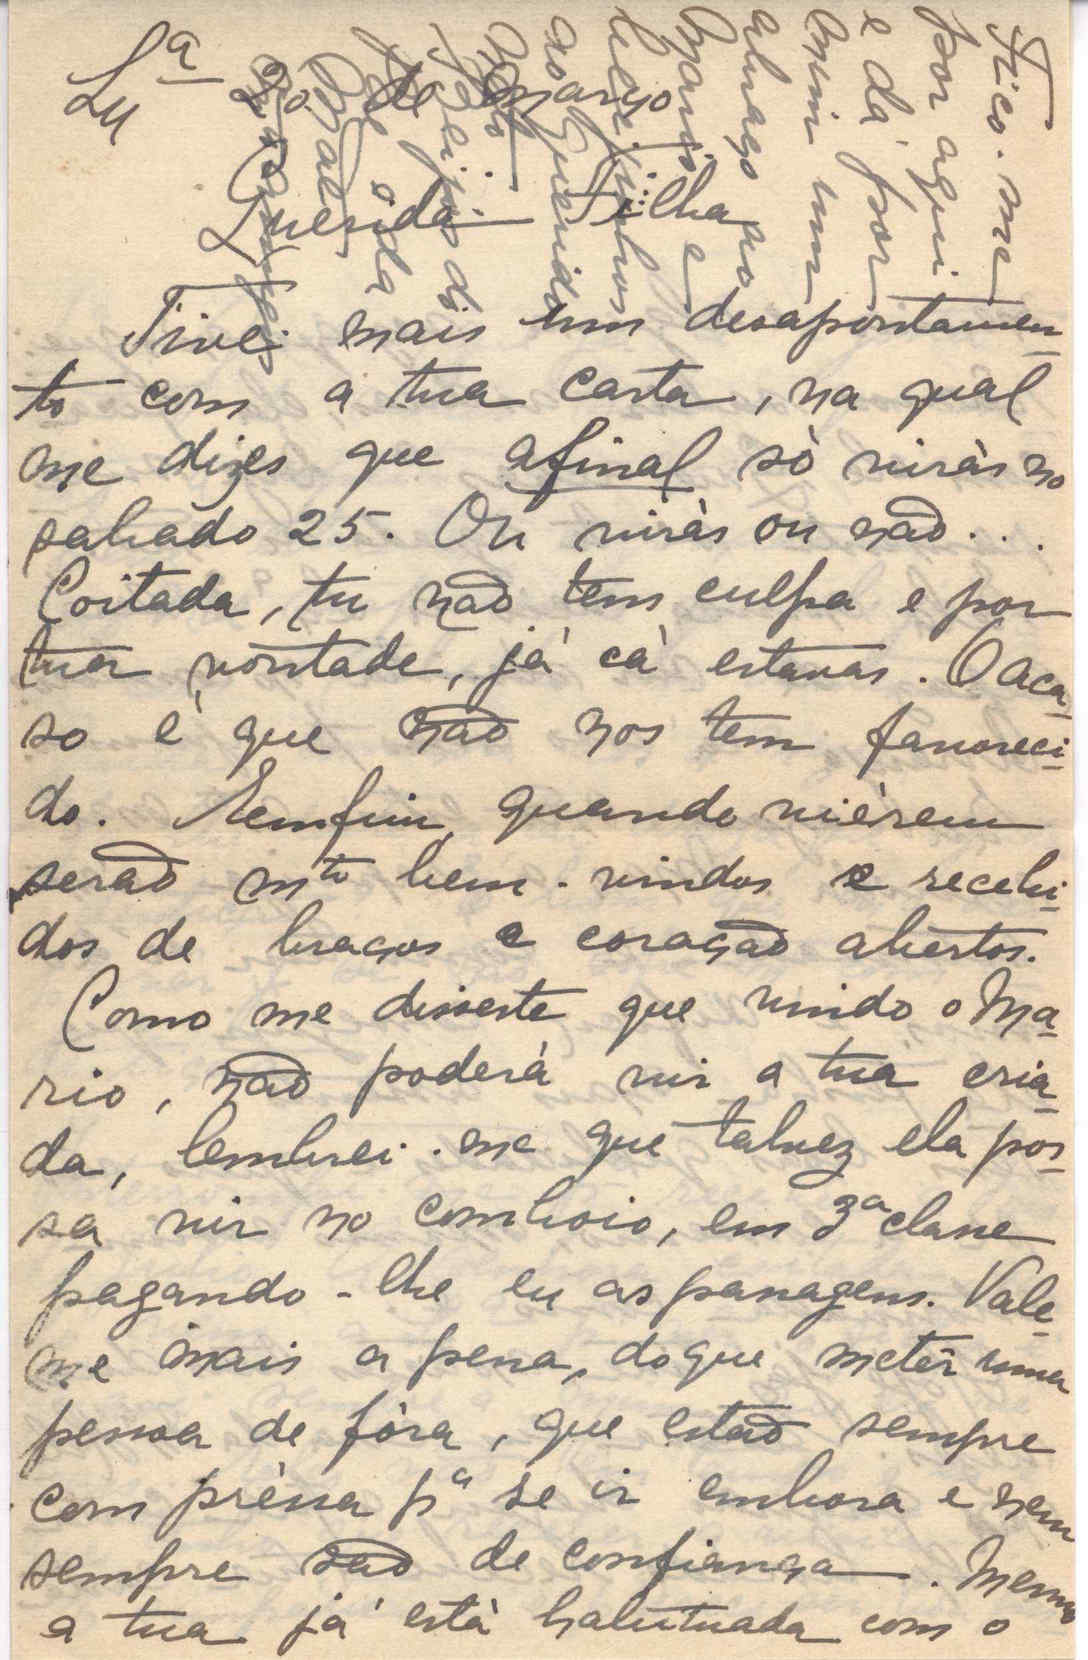 Lxª 20 de Março
Querida Filha:
Tive mais um desapontamen-
to com a tua carta, na qual
me dizes que afinal só virás no
sabado 25. Ou virás ou não...
Coitada, tu não tem culpa e por
tua vontade, já cá estavas. O aca-
so é que não nos tem favoreci-
do. Emfim, quando vierem
serão mto bem-vindos e recebi-
dos de braços e coração abertos.
Como me disseste que vindo o Ma-
rio, não poderá vir a tua cria-
da, lembrei-me que talvez ela pos-
sa vir no comboio, em 3ª classe
pagando-lhe eu as passagens. Vale-
me mais a pena, do que metêr uma
pessoa de fóra, que estão sempre
com préssa pª se ir embora e nem
sempre são de confiança. Mesmo
a tua já está habituada com o
Fico-me
por aqui
e dá por
mim um
abraço ao
Mario e
beijinhos
ao querido
beijos da